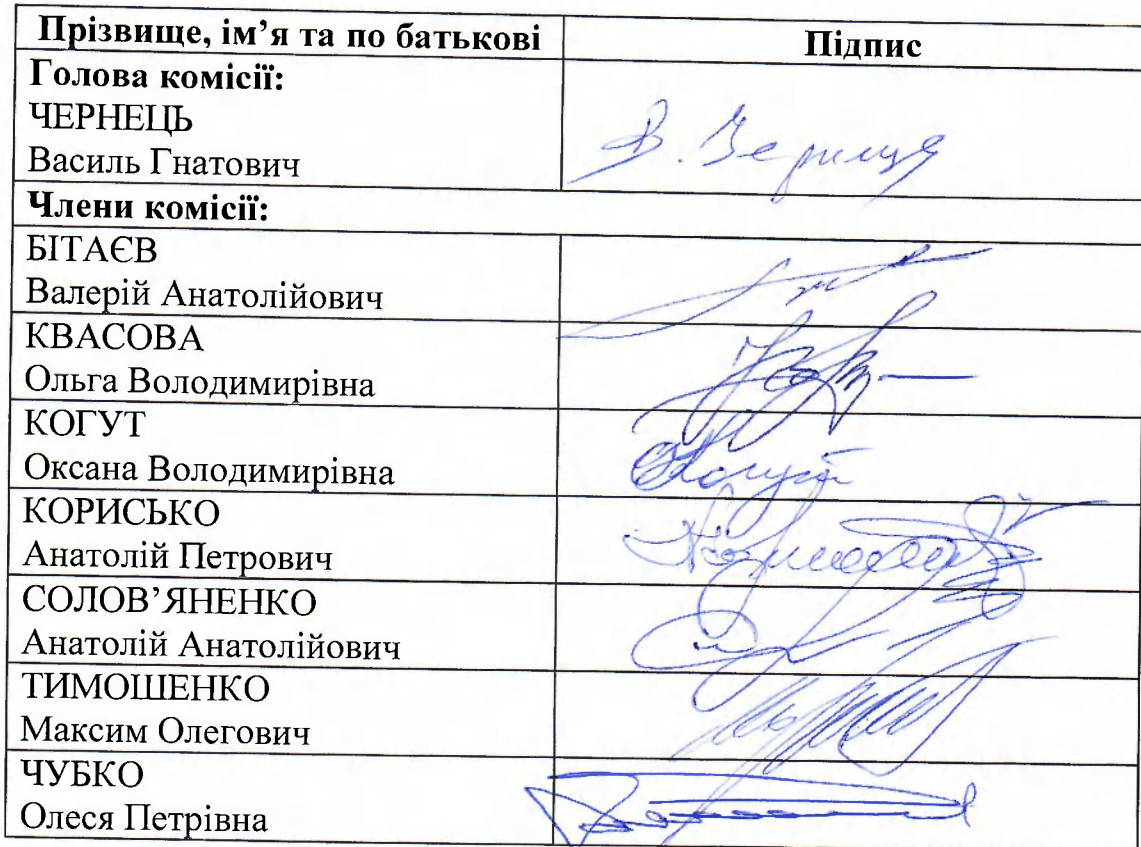 Прізвище, ім’я та по батькові Підпис
Голова комісії:
ЧЕРНЕЦЬ
Василь Гнатович
Члени комісії:
БІТАЄВ
Валерій Анатолійович
КВАСОВА
Ольга Володимирівна
КОГУТ
Оксана Володимирівна
КОРИСЬКО
Анатолій Петрович
СОЛОВ’ЯНЕНКО
Анатолій Анатолійович
ТИМОШЕНКО
Максим Олегович
ЧУБКО
Олеся Петрівна